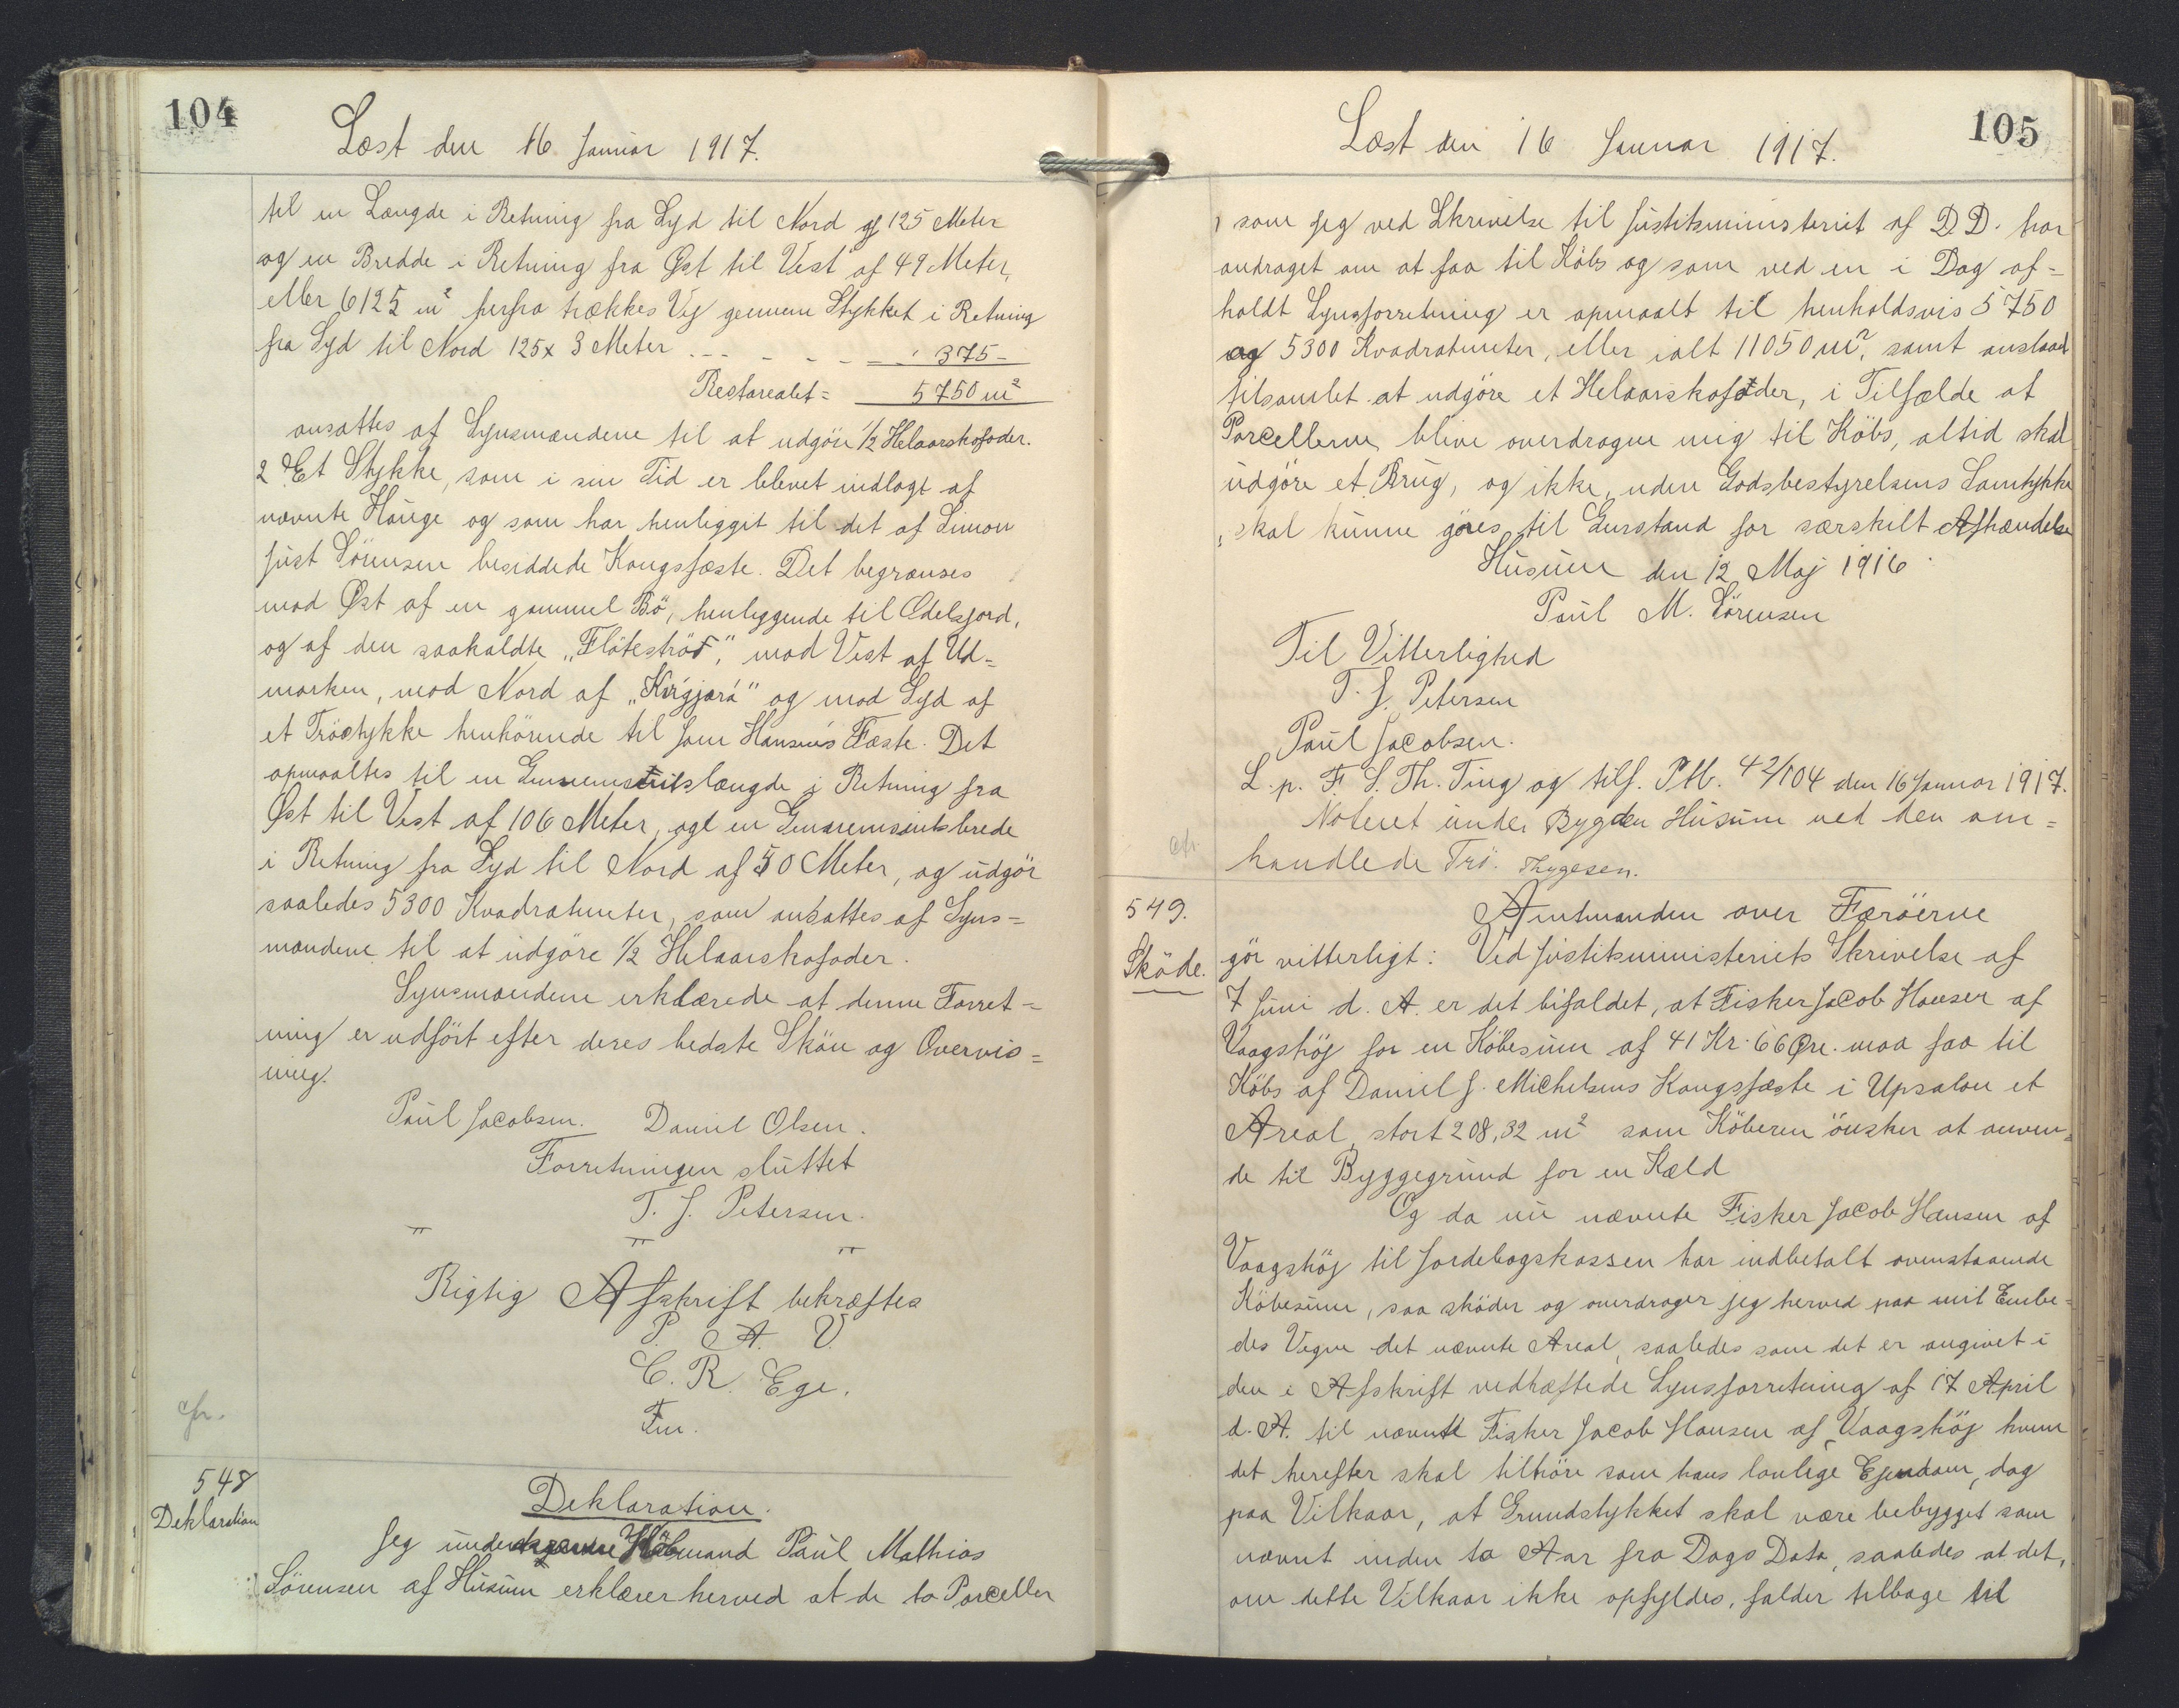 104
Læst den 16 Januar 1917.
til en Længde i Retning fra Syd til Nord af 125 Meter
og en Bredde i Retning fra Øst til Vest af 49 Meter,
eller 6125 m² herfra trækkes Vej gennem Stykket i Retning
fra Syd til Nord 125x 3 Meter - - - - - - 375 -
Restarealet = 5750 m²
ansattes af Synsmændene til at udgöre 1/2 Helaarskofoder.
2 Et Stykke, som i sin Tid er blevet indlagt af
nævnte Hauge og som har henliggit til det af Simon
Just Sörensen besiddede Kongsfæste. Det begrænses
mod Øst af en gammel Bö, henliggende til Ødelsjord,
og af den saakaldte „Flöteströd", mod Vest af Ud=
marken, mod Nord af „Kirgjará" og mod Syd af
et Tröstykke henhörende til Joen Hansens Fæste. Det
opmaaltes til en Gennemsnitslængde i Retning fra
Øst til Vest af 106 Meter, og en Gennemsnitsbrede
i Retning fra Syd til Nord af 50 Meter, og udgör
saaledes 5300 Kvadratmeter, som ansattes af Syns=
mændene til at udgöre 1/2 Helaarskofoder.
Synsmændene erklærede at denne Forret=
ning er udfört efter deres bedste Skön og Overvis=
ning.
Paul Jacobsen. Daniel Olsen.
Forretningen sluttet
T. J. Petersen.
Rigtig Afskrift bekræftes
P. A. V.
C. R. Ege.
Fm.
cfr.
548
Deklaration
Deklaration.
Jeg undertegnede Köbmand Paul Mathias
Sörensen af Husum erklærer herved at de to Parceller
105
Læst den 16 Januar 1917.
som jeg ved Skrivelse til Justitsministeriet af D. D. har
andraget om at faa til Köbs og som ved en i Dag af=
holdt Synsforretning er opmaalt til henholdsvis 5750
og 5300 Kvadratmeter, eller ialt 11050 m², samt anslaaet
tilsamlet at udgöre et Helaarskofoder, i Tilfælde at
Parcellerne blive overdragne mig til Köbs, altid skal
udgöre et Brug, og ikke, uden Godsbestyrelsens Samtykke
skal kunne göres til Genstand for særskilt Afhændelse
Husum den 12 Maj 1916.
Paul M. Sörensen
Til Vitterlighed
T. J. Petersen
Paul Jacobsen.
L. p. F. S. Th. Ting og tilf. Ptb. 42/104 den 16 Januar 1917.
Noteret under Bygden Husum ved den om=
cfr.
handlede Trö. Thygesen.
549.
Sköde.
Amtmanden over Færöerne
gör vitterligt: Ved Justitsministeriets Skrivelse af
7 Juni d. A. er det bifaldet, at Fisker Jacob Hansen af
Vaagshöj for en Köbesum af 41 Kr. 66 Øre. maa faa til
Köbs af Daniel J. Michelsens Kongsfæste i Upsalon et
Areal, stort 208,32 m² som Köberen önsker at anven=
de til Byggegrund for en Kæld
Og da nu nævnte Fisker Jacob Hansen af
Vaagshöj til Jordebogskassen har indbetalt ovenstaaende
Köbesum, saa sköder og overdrager jeg herved paa mit Embe=
des Vegne det nævnte Areal, saaledes som det er angivet i
den i Afskrift vedhæftede Synsforretning af 17 April
d. A. til nævnte Fisker Jacob Hansen af Vaagshöj hvem
det herefter skal tilhöre som hans lovlige Ejendom, dog
paa Vilkaar, at Grundstykket skal være bebygget som
nævnt inden to Aar fra Dags Dato, saaledes at det,
om dette Vilkaar ikke opfyldes, falder tilbage til